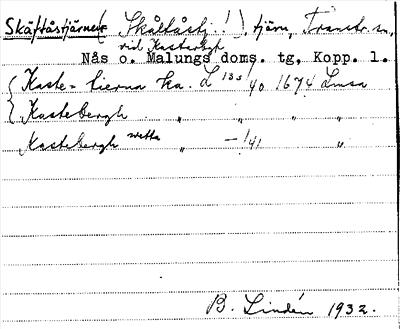 Skåftåstjärnen (Skåltåstj.!), tjärn, Transtr. sn,
vid Kasterbgh
Nås o. Malungs doms. tg, Kopp. l.
Kaste-tierna Ka. L 135 40 1674 Lmsa
Kastebergh " " " "
Kastebergh wetta " — 1/41 "
B. Lindén 1932.